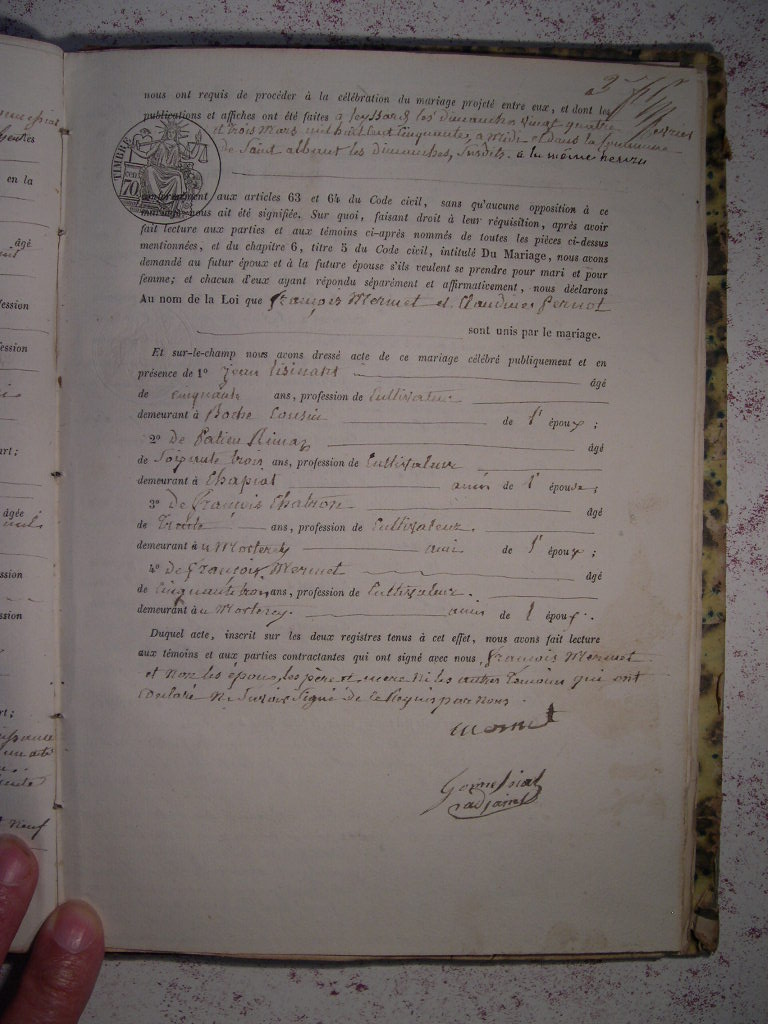 nous ont requis de procéder à la célébration du mariage projeté entre eux, et dont les
publications et affiches ont été faites à Leyssard les dimanches vingt quatre
et trois Mars mil huit cent cinquante, à Midi et dans la Commune
de Saint alban les dimanches susdits à la même heure
TIMBRE
70
conformément aux articles 63 et 64 du Code civil, sans qu'aucune opposition à ce
mariage nous ait été signifiée. Sur quoi, faisant droit à leur réquisition, après avoir
fait lecture aux parties et aux témoins ci-après nommés de toutes les pièces ci-dessus
mentionnées, et du chapitre 6, titre 5 du Code civil, intitulé Du Mariage, nous avons
demandé au futur époux et à la future épouse s'ils veulent se prendre pour mari et pour
femme; et chacun d'eux ayant répondu séparément et affirmativement, nous déclarons
Au nom de la Loi que françois Mermet et Claudine Pernot
sont unis par le mariage.
Et sur-le-champ nous avons dressé acte de ce mariage célébré publiquement et en
présence de 1° jean âgé
de cinquante ans, profession de Cultivateur
demeurant à Boche Cousin de l' époux;
2° de âgé
de soixante trois ans, profession de Cultivateur
demeurant à Chapiat amis de l' épouse;
3° de françois Chatron âgé
de Trente ans, profession de Cultivateur.
demeurant à ami de l' époux;
4° de françois Mermet âgé
de Cinquante trois ans, profession de Cultivateur.
demeurant à amis de l époux.
Duquel acte, inscrit sur les deux registres tenus à cet effet, nous avons fait lecture
aux témoins et aux parties contractantes qui ont signé avec nous, françois Mermet
et non les époux, les père et mere ni les autres témoins qui ont
déclaré ne savoir signé de ce requis par nous.
Mermet
adjoint